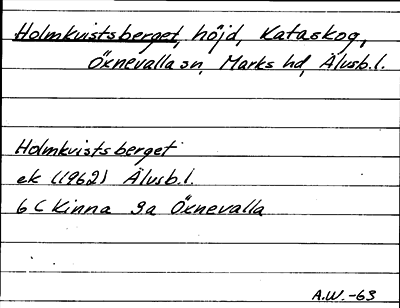 Holmkvistsberget, höjd, Kataskog,
Öxnevalla sn, Marks hd, Älvsb.l.
Holmkvistsberget
ek (1962) Älvsb.l.
6 C Kinna 9a Öxnevalla
A.W.-63